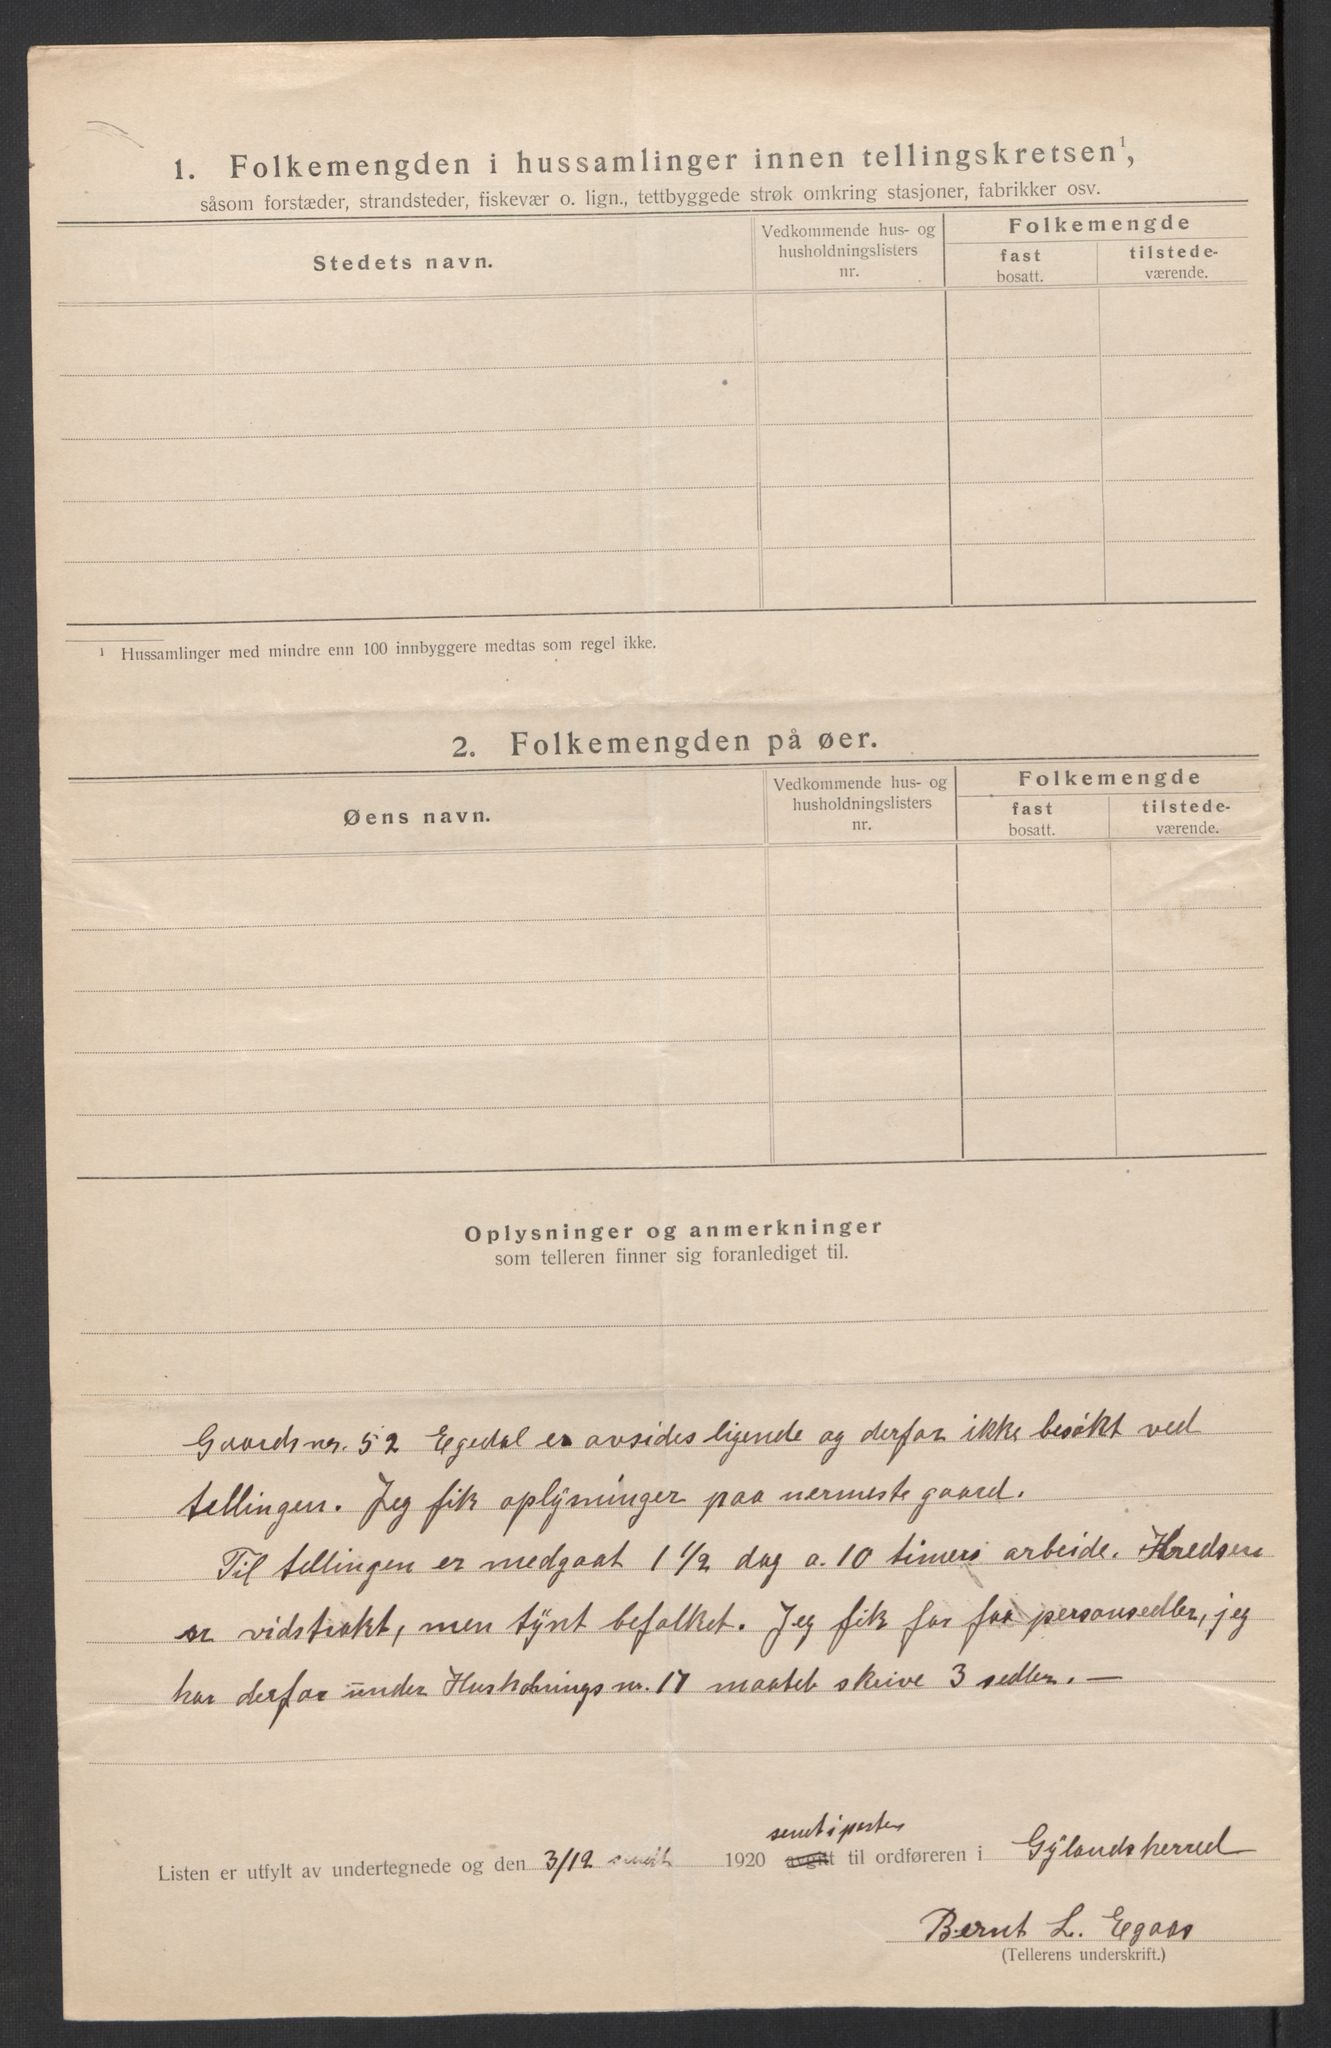 1. Folkemengden i hussamlinger innen tellingskretsen¹,
såsom forstæder, strandsteder, fiskevær o. lign., tettbyggede strøk omkring stasjoner, fabrikker osv.
Stedets navn.
Vedkommende hus- og
husholdningslisters
nr.
Folkemengde
fast
bosatt.
tilstede-
værende.
¹ Hussamlinger med mindre enn 100 innbyggere medtas som regel ikke.
2. Folkemengden på øer.
Øens navn.
Vedkommende hus- og
husholdningslisters
nr.
Folkemengde
fast
bosatt.
tilstede-
værende.
Oplysninger og anmerkninger
som telleren finner sig foranlediget til.
Gaards nr. 52 Egedal er avsides ligende og derfor ikke besøkt ved
tellingen. Jeg fik oplysninger paa nermeste gaard.
Til tellingen er medgaat 1 1/2 dag a. 10 timers arbeide. Kredsen
er vidstrakt, men tynt befolket. Jeg fik for faa personsedler, jeg
har derfor under nr. 17 maatet skrive 3 sedler. —
sendt i posten
Listen er utfylt av undertegnede og den 3/12 sendt 1920 avgitt til ordføreren i Gylandsherred
Bernt L. Egaas
(Tellerens underskrift.)